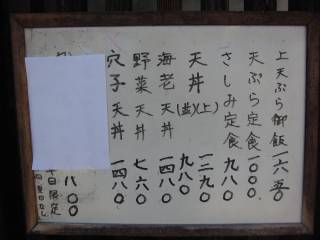 上天ぷら御飯 一六五〇
天ぷら定食 一〇〇〇
さしみ定食 九八〇
天丼 (上) 一二九〇
(並) 九八〇
海老天丼 一四八〇
野菜天丼 七六〇
穴子天丼 一四八〇
八〇〇